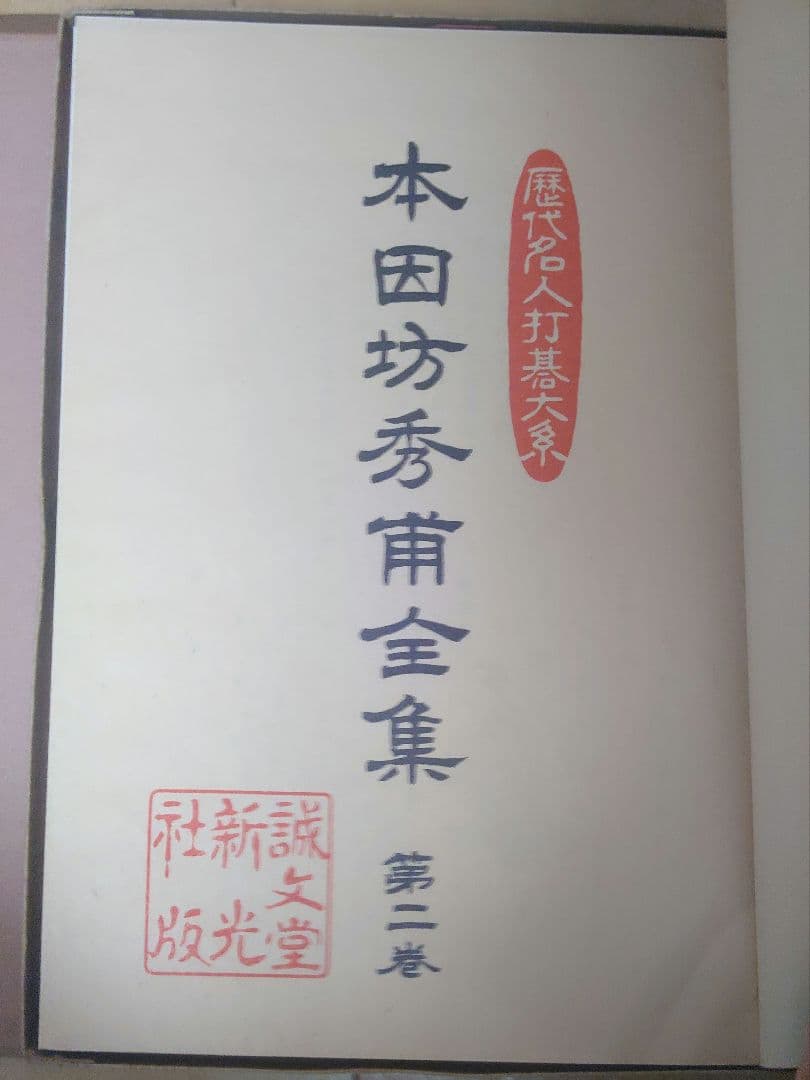 歴代名人打碁大系
本因坊秀甫全集 第二巻
誠文堂
新光
社版